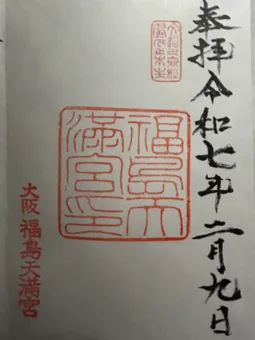 奉拝 令和七年二月九日
福島天
満宮印
大阪 福島天満宮